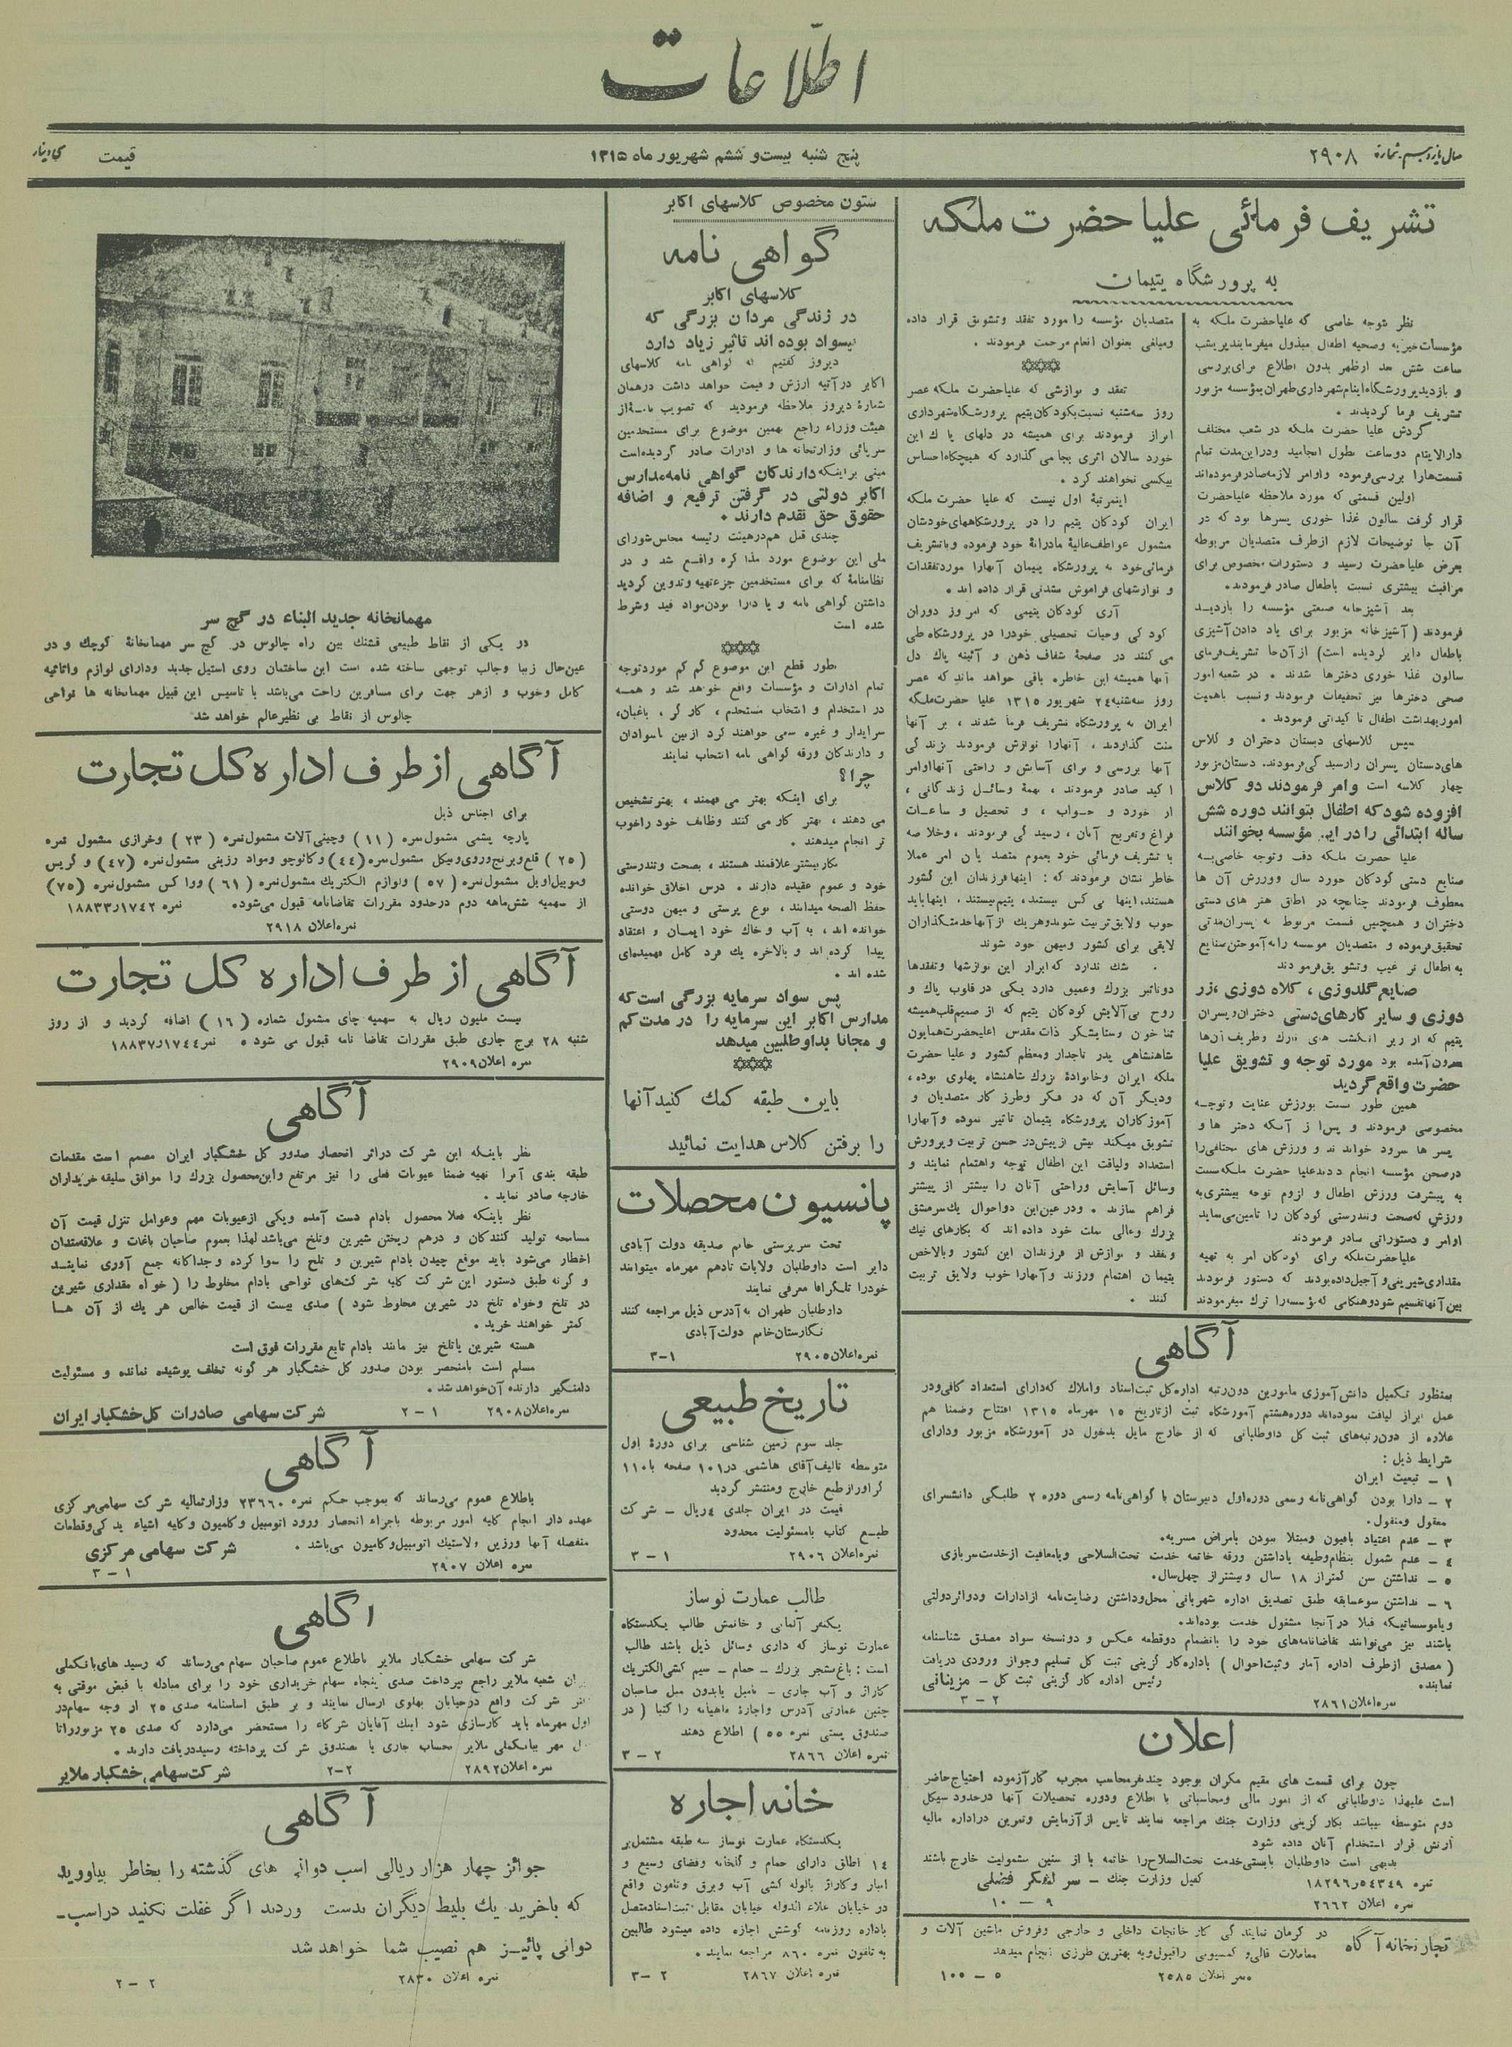 اطلاعات
سال یازدهم شماره ۲۹۰۸
پنج شنبه بیست و ششم شهریور ماه ۱۳۱۵
قیمت
تشریف فرمائی علیا حضرت ملکه
به پرورشگاه یتیمان
نظر بتوجه خاصی که علیاحضرت ملکه به
مؤسسات خیریه و صحیه اطفال مبذول میفرمایند پریشب
ساعت شش بعد از ظهر بدون اطلاع برای بررسی
و بازدید پرورشگاه ایتام شهرداری طهران بمؤسسه مزبور
تشریف فرما گردیدند .
گردش علیا حضرت ملکه در شعب مختلف
دارالایتام دو ساعت بطول انجامید و در این مدت تمام
قسمت‌ها را بررسی فرموده و اوامر لازمه صادر فرموده‌اند
اولین قسمتی که مورد ملاحظه علیاحضرت
قرار گرفت سالون غذا خوری پسرها بود که در
آن جا توضیحات لازم از طرف متصدیان مربوطه
بعرض علیاحضرت رسید و دستورات مخصوص برای
مراقبت بیشتری نسبت باطفال صادر فرمودند.
بعد آشپزخانه صنعتی مؤسسه را بازدید
فرمودند ( آشپزخانه مزبور برای یاد دادن آشپزی
باطفال دایر گردیده است) از آن جا تشریف فرمای
سالون غذا خوری دخترها شدند . در شعبه امور
صحی دخترها نیز تحقیقات فرمودند و نسبت باهمیت
امور بهداشت اطفال تاکیداتی فرمودند.
سپس کلاسهای دبستان دختران و کلاس
های دبستان پسران را رسیدگی فرمودند. دبستان مزبور
چهار کلاسه است و امر فرمودند دو کلاس
افزوده شود که اطفال بتوانند دوره شش
ساله ابتدائی را در این مؤسسه بخوانند
علیا حضرت ملکه دقت و توجه خاصی به
صنایع دستی کودکان خورد سال و ورزش آن ها
معطوف فرمودند چنانچه در اطاق هنر های دستی
دختران و همچنین قسمت مربوط به پسران مدتی
تحقیق فرموده و متصدیان موسسه را به آموختن صنایع
به اطفال ترغیب و تشویق فرمودند
صنایع گلدوزی ، کلاه دوزی ، زر
دوزی و سایر کارهای دستی دختران و پسران
یتیم که از زیر انگشت های نازک و ظریف آن‌ها
بیرون آمده بود مورد توجه و تشویق علیا
حضرت واقع گردید
همین طور نسبت بورزش عنایت و توجه
مخصوصی فرمودند و پس از آنکه دختر ها و
پسر ها سرود خواندند و ورزش های مختلفی را
در صحن مؤسسه انجام دادند علیا حضرت ملکه نسبت
به پیشرفت ورزش اطفال و لزوم توجه بیشتری به
ورزش که صحت و تندرستی کودکان را تامین می‌نماید
اوامر و دستوراتی صادر فرمودند
علیاحضرت ملکه برای کودکان امر به تهیه
مقداری شیرینی و آجیل داده بودند که دستور فرمودند
بین آنها تقسیم شود و هنگامی که مؤسسه را ترک میفرمودند
متصدیان مؤسسه را مورد تفقد و تشویق قرار داده
و مبالغی بعنوان انعام مرحمت فرمودند .
تفقد و نوازشی که علیاحضرت ملکه عصر
روز سه‌شنبه نسبت بکودکان یتیم پرورشگاه شهرداری
ابراز فرمودند برای همیشه در دلهای پاک این
خورد سالان اثری بجا می گذارد که هیچگاه احساس
بیکسی نخواهند کرد .
این مرتبهٔ اول نیست که علیا حضرت ملکه
ایران کودکان یتیم را در پرورشگاه‌های خودشان
مشمول عواطف عالیهٔ مادرانهٔ خود فرموده و با تشریف
فرمائی خود به پرورشگاه یتیمان آنها را مورد تفقدات
و نوازشهای فراموش نشدنی قرار داده اند .
آری کودکان یتیمی که امروز دوران
کودکی و حیات تحصیلی خود را در پرورشگاه طی
می کنند در صفحهٔ شفاف ذهن و آئینه پاک دل
آنها همیشه این خاطره باقی خواهد ماند که عصر
روز سه‌شنبه ۲۴ شهریور ۱۳۱۵ علیا حضرت ملکه
ایران به پرورشگاه تشریف فرما شدند ، بر آنها
منت گذاردند ، آنها را نوازش فرمودند بزندگی
آنها بررسی و برای آسایش و راحتی آنها اوامر
اکید صادر فرمودند ، بهمهٔ وسائل زندگانی ،
از خورد و خواب ، و تحصیل و ساعات
فراغ و تفریح آنان ، رسیدگی فرمودند . و خلاصه
با تشریف فرمائی خود بعموم متصدیان امر عملا
خاطر نشان فرمودند که : اینها فرزندان این کشور
هستند، اینها بی کس نیستند، یتیم نیستند. اینها باید
خوب و لایق تربیت شوند و هر یک از آنها خدمتگذاران
لایقی برای کشور و میهن خود شوند
شک ندارد که ابراز این نوازشها و تفقدها
دو تاثیر بزرگ و عمیق دارد یکی در قلوب پاک و
روح بی‌آلایش کودکان یتیم که از صمیم قلب همیشه
ثنا خوان و ستایشگر ذات مقدس اعلیحضرت همایون
شاهنشاهی پدر تاجدار و معظم کشور و علیا حضرت
ملکه ایران و خانوادهٔ بزرگ شاهنشاه پهلوی بوده ،
و دیگر آن که در فکر و طرز کار متصدیان و
آموزگاران پرورشگاه یتیمان تاثیر نموده و آنها را
تشویق میکند بیش از پیش در حسن تربیت و پرورش
استعداد و لیاقت این اطفال توجه و اهتمام نمایند و
وسائل آسایش و راحتی آنان را بیشتر از پیشتر
فراهم سازند . و در عین این دو احوال یک سرمشق
بزرگ و عالی بملت خود داده اند که بکارهای نیک
و تفقد و نوازش از فرزندان این کشور و بالاخص
یتیمان اهتمام ورزند و آنها را خوب و لایق تربیت
کنند .
آگاهی
بمنظور تکمیل دانش‌آموزی مامورین دون رتبه اداره کل ثبت اسناد و املاک که دارای استعداد کافی و در
عمل ابراز لیاقت نموده‌اند دوره هشتم آموزشگاه ثبت از تاریخ ۱۵ مهرماه ۱۳۱۵ افتتاح و ضمنا هم
علاوه از دون رتبه‌های ثبت کل داوطلبانی که از خارج مایل بدخول در آموزشگاه مزبور و دارای
شرایط ذیل :
۱ - تبعیت ایران
۲ - دارا بودن گواهی‌نامه رسمی دوره اول دبیرستان یا گواهی‌نامه رسمی دوره ۲ طلبگی دانشسرای
معقول و منقول.
۳ - عدم اعتیاد بافیون و مبتلا نبودن بامراض مسریه.
۴ - عدم شمول بنظام وظیفه یا داشتن ورقه خاتمه خدمت تحت‌السلاحی و یا معافیت از خدمت سربازی
۵ - نداشتن سن کمتر از ۱۸ سال و بیشتر از چهل سال.
۶ - نداشتن سوء سابقه طبق تصدیق اداره شهربانی محل و داشتن رضایت‌نامه از ادارات و دوائر دولتی
و یا موسساتیکه قبلا در آنجا مشغول خدمت بوده‌اند.
باشند نیز می‌توانند تقاضانامه‌های خود را بانضمام دو قطعه عکس و دو نسخه سواد مصدق شناسنامه
( مصدق از طرف اداره آمار و ثبت احوال ) باداره کارگزینی ثبت کل تسلیم و جواز ورودی دریافت
نمایند.
رئیس اداره کارگزینی ثبت کل - مزینانی
نمره اعلان ۲۸۶۱
۲ - ۳
اعلان
چون برای قسمت های مقیم مکران بوجود چند نفر محاسب مجرب کار آزموده احتیاج حاضر
است علیهذا داوطلبانی که از امور مالی و محاسباتی با اطلاع و دوره تحصیلات آنها در حدود سیکل
دوم متوسطه میباشد بکار گزینی وزارت جنگ مراجعه نمایند تا پس از آزمایش و تمرین در اداره مالیه
ارتش قرار استخدام آنان داده شود
بدیهی است داوطلبان بایستی خدمت تحت‌السلاح را خاتمه یا از سنین مشمولیت خارج باشند
نمره ۵۴۳۴۹ر۱۸۲۹۶
کفیل وزارت جنگ - سرلشگر فضلی
نمره اعلان ۲۶۶۲
۹ - ۱۰
تجارتخانه آگاه
در کرمان نمایندگی کارخانجات داخلی و خارجی و فروش ماشین آلات و
معاملات قالی و کمسیونی را قبول و به بهترین طرزی انجام میدهد
نمره اعلان ۲۵۸۵
۵ - ۱۰۰
ستون مخصوص کلاسهای اکابر
گواهی نامه
کلاسهای اکابر
در زندگی مردان بزرگی که
بیسواد بوده اند تاثیر زیاد دارد
دیروز گفتیم که گواهی نامه کلاسهای
اکابر در آتیه ارزش و قیمت خواهد داشت در همان
شمارهٔ دیروز ملاحظه فرمودید که تصویب نامه از
هیئت وزراء راجع بهمین موضوع برای مستخدمین
سرپائی وزارتخانه ها و ادارات صادر گردیده است
مبنی بر اینکه دارندگان گواهی نامه مدارس
اکابر دولتی در گرفتن ترفیع و اضافه
حقوق حق تقدم دارند .
چندی قبل هم در هیئت رئیسه مجلس شورای
ملی این موضوع مورد مذاکره واقع شد و در
نظامنامهٔ که برای مستخدمین جزء تهیه و تدوین گردید
داشتن گواهی نامه و یا دارا بودن سواد قید و شرط
شده است
بطور قطع این موضوع کم کم مورد توجه
تمام ادارات و مؤسسات واقع خواهد شد و همه
در استخدام و انتخاب مستخدم ، کارگر . باغبان،
سرایدار و غیره سعی خواهند کرد از بین باسوادان
و دارندگان ورقه گواهی نامه انتخاب نمایند
چرا؟
برای اینکه بهتر می فهمند ، بهتر تشخیص
می دهند ، بهتر کار می کنند وظایف خود را خوب
تر انجام میدهند .
بکار بیشتر علاقمند هستند ، بصحت و تندرستی
خود و عموم عقیده دارند . درس اخلاق خوانده
حفظ الصحه میدانند ، نوع پرستی و میهن دوستی
خوانده اند ، به آب و خاک خود ایمان و اعتقاد
پیدا کرده اند و بالاخره یک فرد کامل فهمیده‌ای
شده اند .
پس سواد سرمایه بزرگی است که
مدارس اکابر این سرمایه را در مدت کم
و مجانا بداوطلبین میدهد
باین طبقه کمک کنید آنها
را برفتن کلاس هدایت نمائید
پانسیون محصلات
تحت سرپرستی خانم صدیقه دولت آبادی
دایر است داوطلبان ولایات تا دهم مهرماه میتوانند
خود را تلگرافا معرفی نمایند
داوطلبان طهران به آدرس ذیل مراجعه کنند
نگارستان خانم دولت آبادی
نمره اعلان ۲۹۰۵
۱-۳
تاریخ طبیعی
جلد سوم زمین شناسی برای دورهٔ اول
متوسطه تالیف آقای هاشمی در ۱۰۱ صفحه با ۱۱۰
گراور از طبع خارج و منتشر گردید
قیمت در ایران جلدی ۴ ریال - شرکت
طبع کتاب بامسئولیت محدود
نمره اعلان ۲۹۰۶
۱ - ۳
طالب عمارت نوساز
یکنفر آلمانی و خانمش طالب یکدستگاه
عمارت نوساز که داری وسائل ذیل باشد طالب
است : باغ مشجر بزرگ - حمام - سیم کشی الکتریک
گاراژ و آب جاری - مامبل یا بدون مبل صاحبان
چنین عمارتی آدرس و اجارهٔ ماهیانه را کتبا ( در
صندوق پستی نمره ۵۵ ) اطلاع دهند
نمره اعلان ۲۸۶۶
۲ - ۳
خانه اجاره
یکدستگاه عمارت نوساز سه طبقه مشتمل بر
۱۴ اطاق دارای حمام و گلخانه و فضای وسیع و
انبار و گاراژ با لوله کشی آب و برق و تلفون واقع
در خیابان علاء الدوله خیابان مقابل ثبت اسناد متصل
باداره روزنامه کوشش اجازه داده میشود طالبین
به تلفون نمره ۸۶۰ مراجعه نمایند.
نمره اعلان ۲۸۶۷
۲ - ۳
مهمانخانه جدید البناء در گچ سر
در یکی از نقاط طبیعی قشنگ بین راه چالوس در گچ سر مهمانخانهٔ کوچک و در
عین حال زیبا و جالب توجهی ساخته شده است این ساختمان روی استیل جدید و دارای لوازم و اثاثیه
کامل و خوب و از هر جهت برای مسافرین راحت می‌باشد با تاسیس این قبیل مهمانخانه ها نواحی
چالوس از نقاط بی نظیر عالم خواهد شد
آگاهی از طرف اداره کل تجارت
برای اجناس ذیل
پارچه پشمی مشمول نمره ( ۱۱ ) و چینی آلات مشمول نمره ( ۲۳ ) و خرازی مشمول نمره
( ۲۵ ) قلع و برنج و روی و نیکل مشمول نمره (۴۴) و کائوچو و مواد رزینی مشمول نمره (۴۷) و گریس
و موبیل اویل مشمول نمره ( ۵۷ ) و لوازم الکتریک مشمول نمره ( ۶۱ ) و واکس مشمول نمره (۷۵)
از سهمیه شش‌ماهه دوم در حدود مقررات تقاضانامه قبول می‌شود.
نمره ۱۷۴۲ر۱۸۸۳۳
نمره اعلان ۲۹۱۸
آگاهی از طرف اداره کل تجارت
بیست ملیون ریال به سهمیه چای مشمول شماره (۱۶) اضافه گردید و از روز
شنبه ۲۸ برج جاری طبق مقررات تقاضا نامه قبول می شود .
نمره ۱۷۴۴ر۱۸۸۳۷
نمره اعلان ۲۹۰۹
آگاهی
نظر باینکه این شرکت در اثر انحصار صدور کل خشگبار ایران مصمم است مقدمات
طبقه بندی آنرا تهیه ضمنا عیوبات فعلی را نیز مرتفع و این محصول بزرگ را موافق سلیقه خریداران
خارجه صادر نماید .
نظر باینکه فعلا محصول بادام دست آمده و یکی از عیوبات مهم و عوامل تنزل قیمت آن
مسامحه تولید کنندگان و درهم ریختن شیرین و تلخ می‌باشد لهذا بعموم صاحبان باغات و علاقمندان
اخطار می‌شود باید موقع چیدن بادام شیرین و تلخ را سوا کرده و جداگانه جمع آوری نمایند
و گرنه طبق دستور این شرکت کلیه شرکت‌های نواحی بادام مخلوط را ( خواه مقداری شیرین
در تلخ و خواه تلخ در شیرین مخلوط شود ) صدی بیست از قیمت خالص هر یک از آن ها
کمتر خواهند خرید .
هسته شیرین یا تلخ نیز مانند بادام تابع مقررات فوق است
مسلم است با منحصر بودن صدور کل خشگبار هر گونه تخلف پوشیده نمانده و مسئولیت
دامنگیر دارنده آن خواهد شد .
نمره اعلان ۲۹۰۸
۱ - ۲
شرکت سهامی صادرات کل خشکبار ایران
آگاهی
باطلاع عموم می‌رساند که بموجب حکم نمره ۲۳۶۶۰ وزارت مالیه شرکت سهامی مرکزی
عهده دار انجام کلیه امور مربوطه باجراء انحصار ورود اتومبیل و کامیون و کلیه اشیاء یدکی و قطعات
منفصله آنها و رزین و لاستیک اتومبیل و کامیون می‌باشد .
شرکت سهامی مرکزی
نمره اعلان ۲۹۰۷
۱ - ۳
آگاهی
شرکت سهامی خشکبار ملایر باطلاع عموم صاحبان سهام می‌رساند که رسید های بانک ملی
شعبه ملایر راجع بپرداخت صدی پنجاه سهام خریداری خود را برای مبادله با قبض موقتی به
شرکت واقع در خیابان پهلوی ارسال نمایند و بر طبق اساسنامه صدی ۲۵ از وجه سهام در
اول مهرماه باید کارسازی شود اینک آقایان شرکاء را مستحضر می‌دارد که صدی ۲۵ مزبور را تا
مهر ببانک ملی ملایر بحساب جاری یا بصندوق شرکت پرداخته رسید دریافت دارند .
نمره اعلان ۲۸۹۲
۲-۲
شرکت سهامی خشکبار ملایر
آگاهی
جوائز چهار هزار ریالی اسب دوانی های گذشته را بخاطر بیاورید
که با خرید یک بلیط دیگران بدست آوردند اگر غفلت نکنید در اسب‌ـ
دوانی پائیز هم نصیب شما خواهد شد
نمره اعلان ۲۸۳۰
۲ - ۲